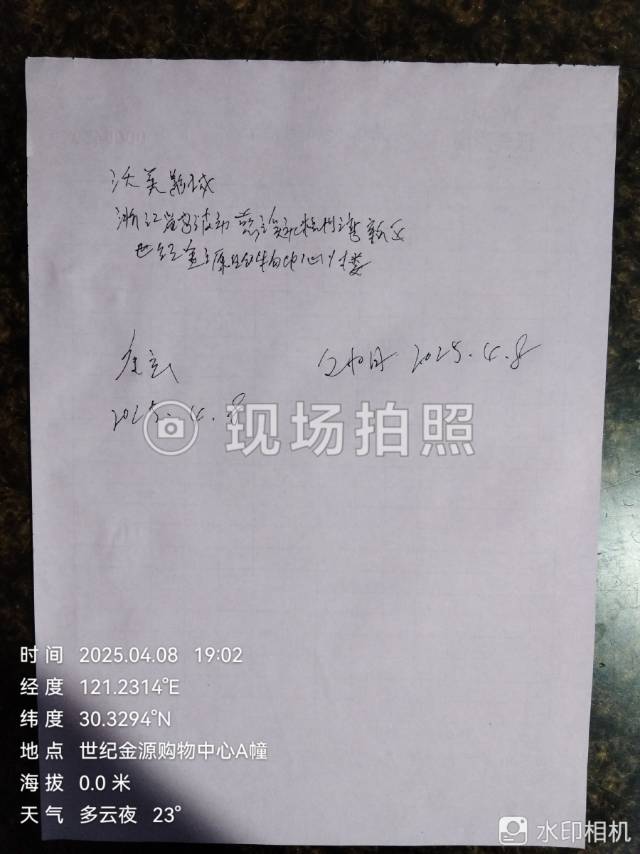 沃美影城
浙江省宁波市慈溪市杭州湾新区
世纪金源购物中心 楼
2025.4.8
2025.4.8
现场拍照
时间 2025.04.08 19:02
经度 121.2314°E
纬度 30.3294°N
地点 世纪金源购物中心A幢
海拔 0.0 米
天气 多云夜 23°
水印相机